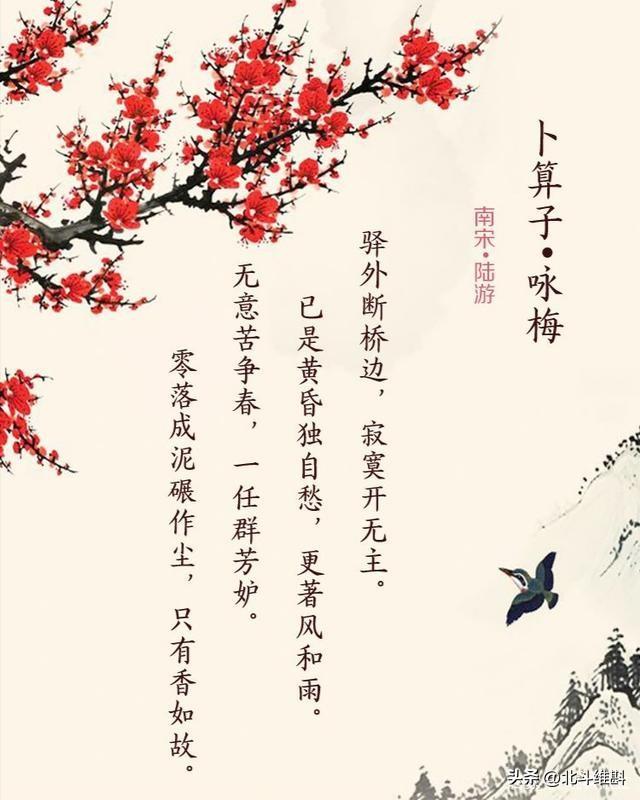 卜算子•咏梅
南宋·陆游
驿外断桥边，寂寞开无主。
已是黄昏独自愁，更著风和雨。
无意苦争春，一任群芳妒。
零落成泥碾作尘，只有香如故。
头条 @北斗维斟